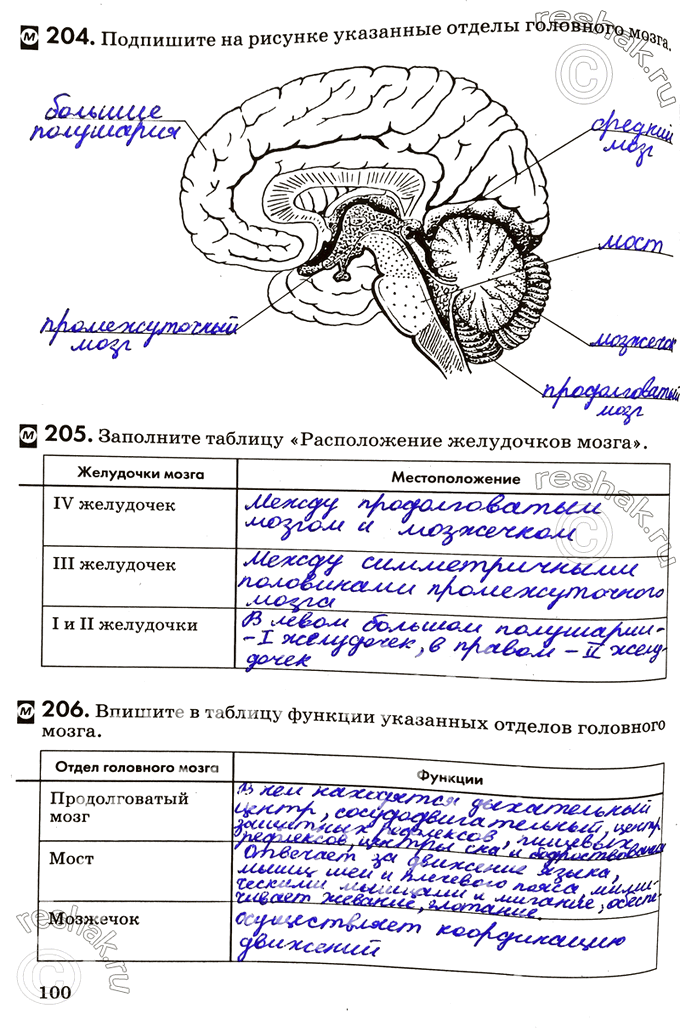 М 204. Подпишите на рисунке указанные отделы головного мозга.
reshak.ru
большие
полушария
средний
мозг
мост
промежуточный
мозг
мозжечок
продолговатый
мозг
М 205. Заполните таблицу «Расположение желудочков мозга».
Желудочки мозга
Местоположение
reshak.ru
IV желудочек
Между продолговатым
мозгом и мозжечком
III желудочек
Между симметричными
половинами промежуточного
мозга
I и II желудочки
В левом большом полушарии-
- I желудочек, в правом – II желу-
дочек
М 206. Впишите в таблицу функции указанных отделов головного
мозга.
Отдел головного мозга
Функции
Продолговатый
мозг
В нем находятся дыхательный
центр, сосудодвигательный, центр
защитных рефлексов, пищевых
рефлексов, центры сна и бодрствования
Мост
Отвечает за движение языка,
мышц шеи и плечевого пояса, мими-
ческими мышцами и мигание, обеспе-
чивает жевание, глотание.
Мозжечок
осуществляет координацию
движений
reshak.ru
100